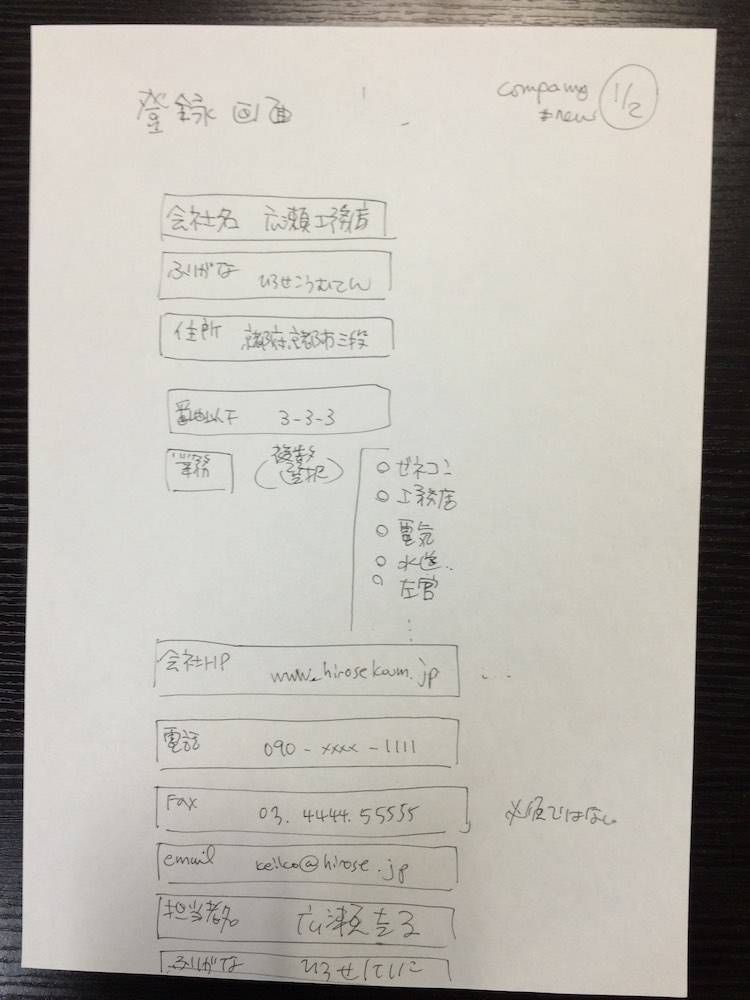 登録画面
company
#new
1/2
会社名 広瀬工務店
ふりがな ひろせこうむてん
住所 京都府京都市三段
番地以下 3-3-3
業務 (複数選択)
○ ゼネコン
○ 工務店
○ 電気
○ 水道..
○ 左官
...
会社HP www.hirosekoum.jp ...
電話 090-xxxx-1111
Fax 03.4444.55555 必須ではない
email keiko@hirose.jp
担当者名 広瀬
ふりがな ひろせ